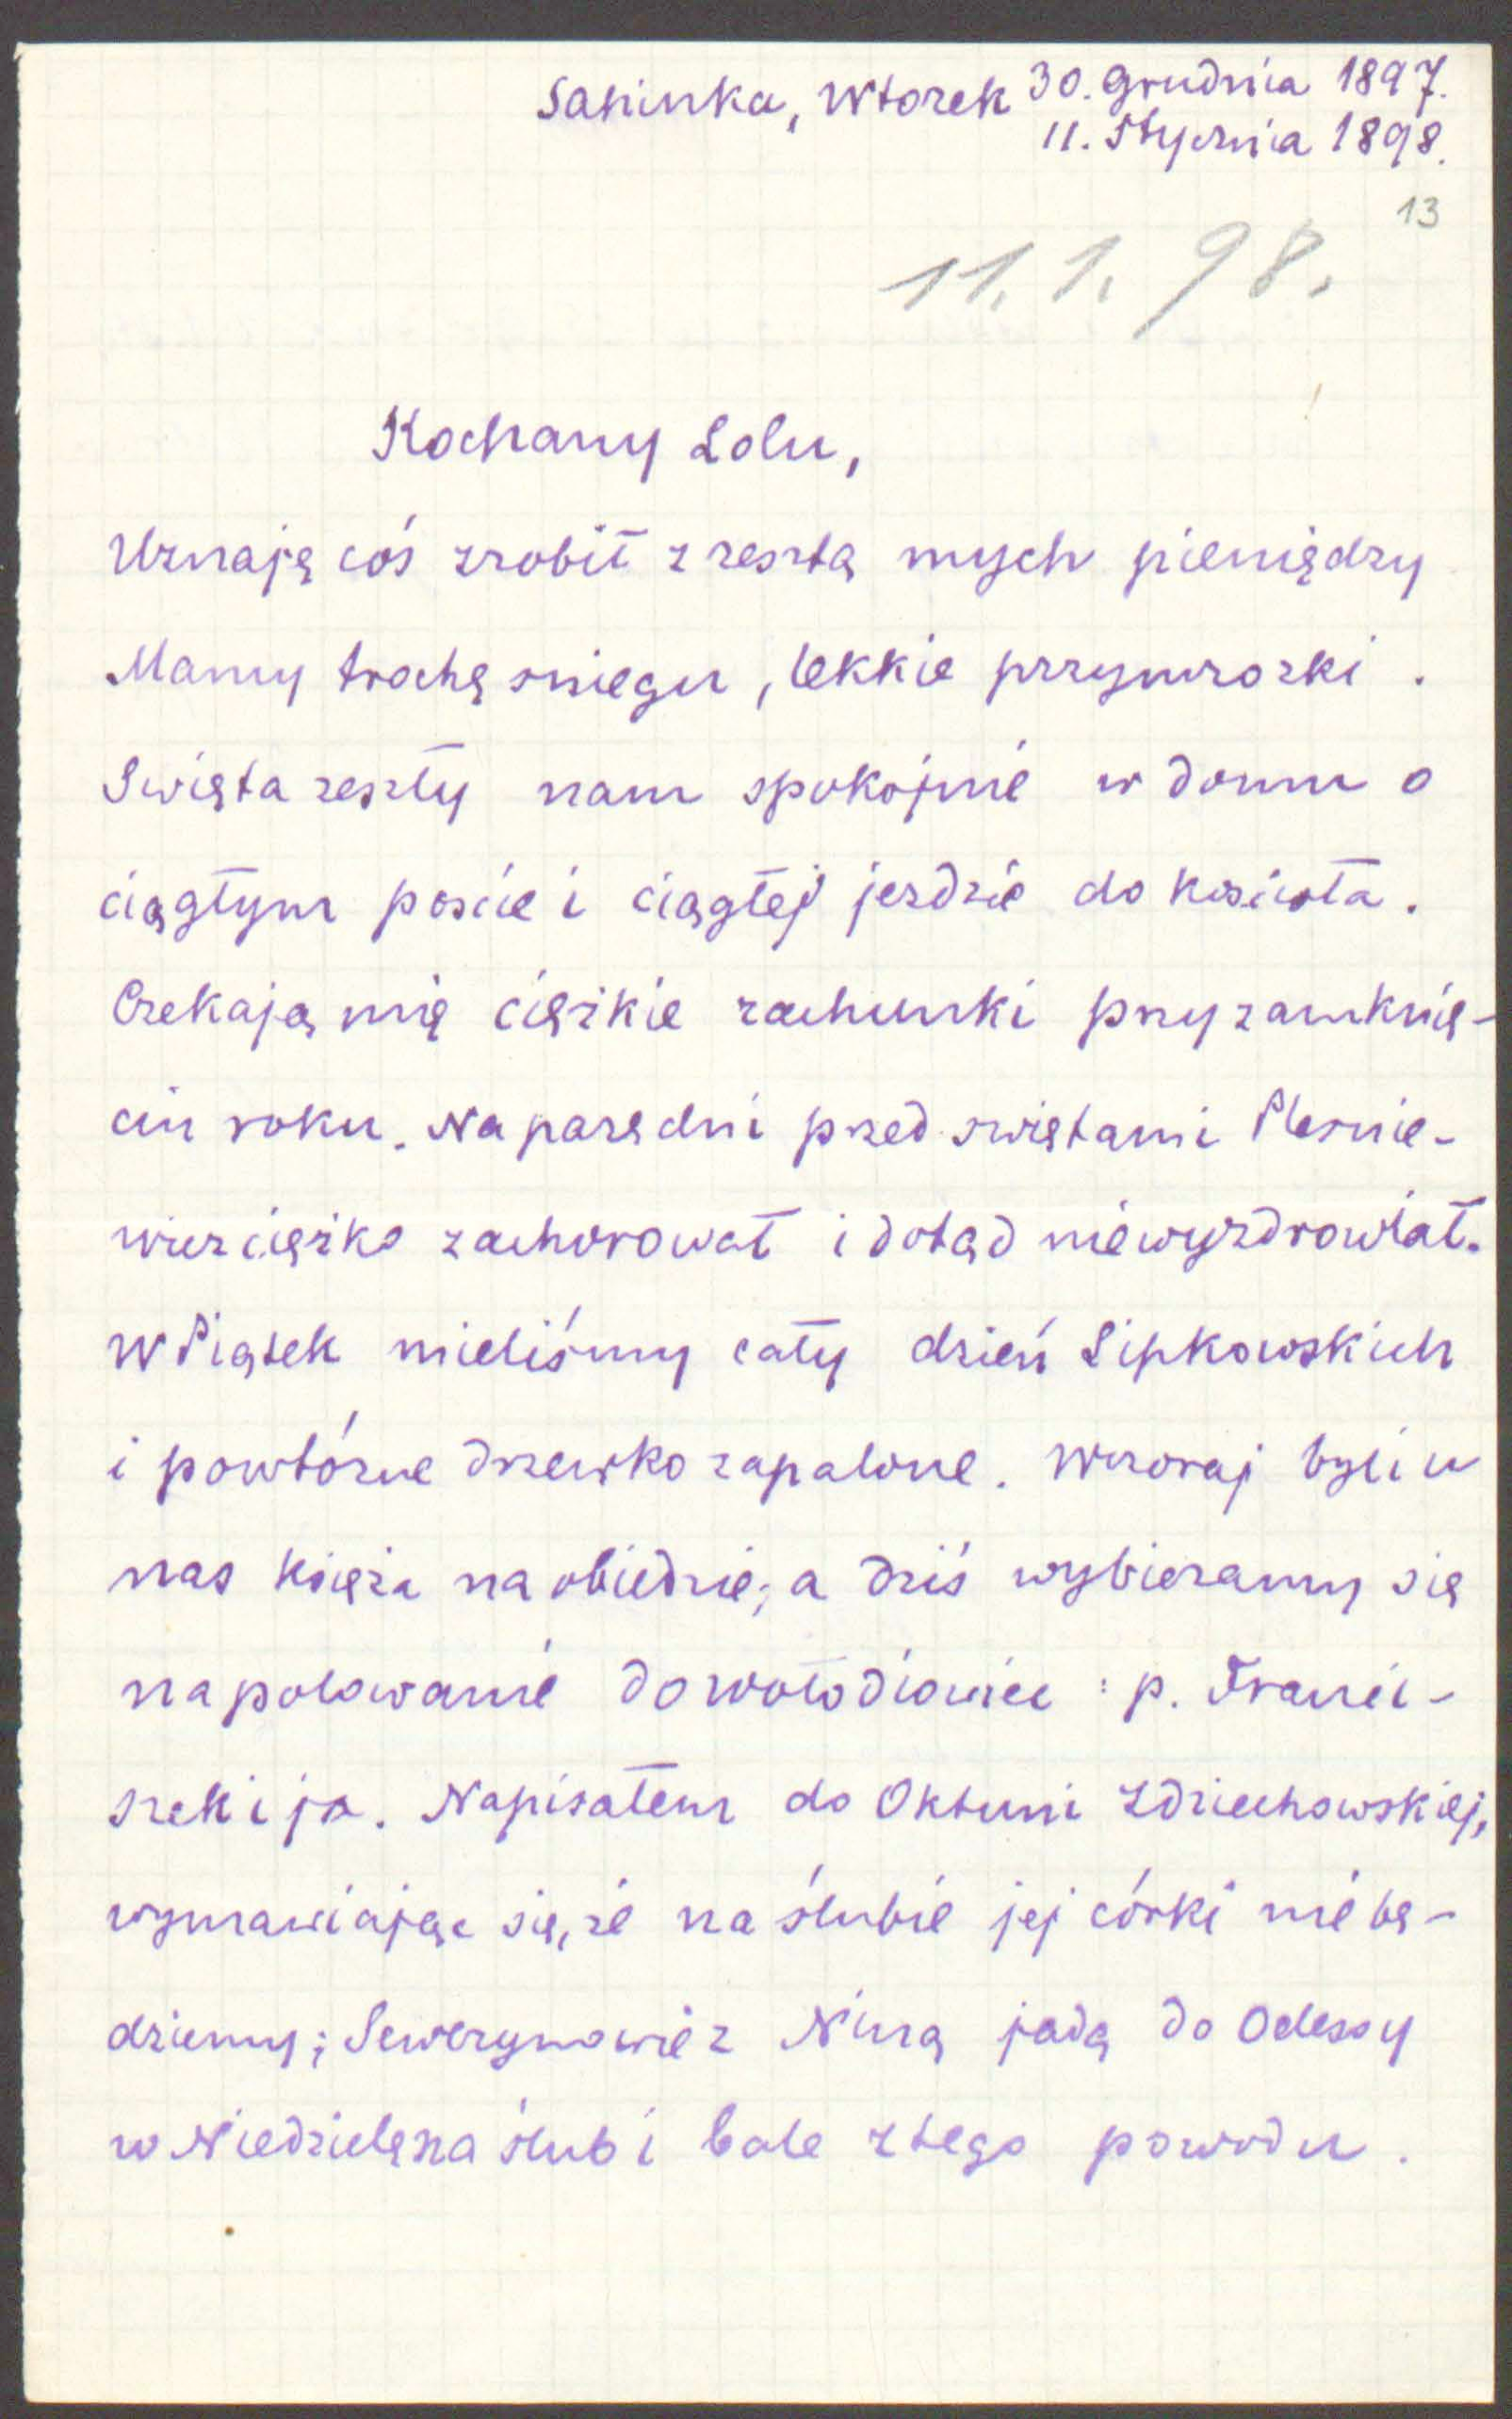 Saninka, Wtorek 30. Grudnia 1897.
11. Stycznia 1898.
13
11. 1. 98.
Kochany Lolu,
Uznaję coś zrobił z resztą mych pieniędzy
Mamy trochę sniegu, lekkie przymrozki.
Swięta zeszły nam spokojnie w domu o
ciągłym poscie i ciągłej jezdzie do kosciola.
Czekają mię cięzkie rachunki przy zamknię-
ciu roku. Na parę dni przed swiętami Plesnie-
wicz cięzko zachorował i dotąd niewyzdrowiał.
W Piątek mieliśmy cały dzień Lipkowskich
i powtórne drzewko zapalone. Wczoraj byli u
nas księza na obiedzie; a dziś wybieramy się
na polowanie do Wołodiowiec: p. Franci-
szek i ja. Napisałem do Oktuni Zdziechowskiej,
wymawiając się, ze na ślubie jej córki nie bę-
dziemy; Sewerynowie z Niną jadą do Odessy
w Niedzielę na ślub i bale z tego powodu.